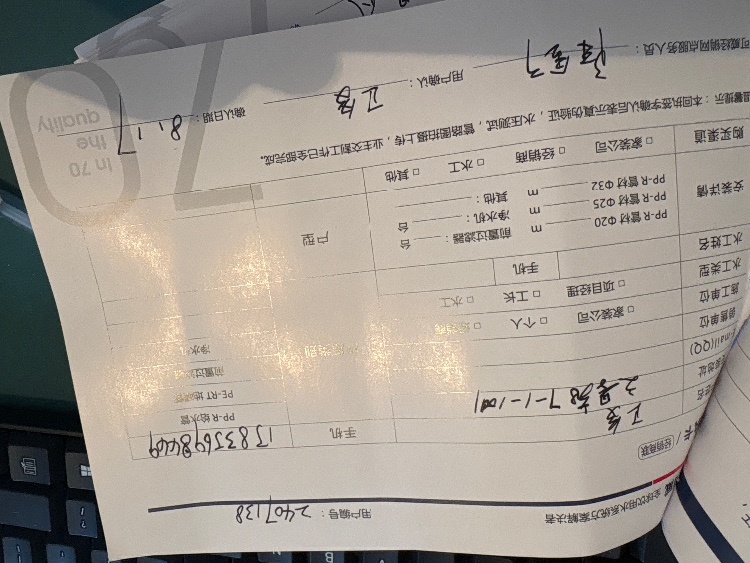 全球饮用水系统方案解决者
用户编号：2407138
卡 / 经销商联
手机 13835698469
7-1-1001
E-mail(QQ)
PP-R 给水管
PE-RT 地暖管
前置过滤
净水
销售单位 □ 家装公司 □ 个人
施工单位 □ 项目经理 □ 工长 □ 水工
水工类型
水工姓名 手机
安装详情 PP-R 管材 Φ20 m 前置过滤器： 台
PP-R 管材 Φ25 m 净水机： 台
PP-R 管材 Φ32 m 其他：
户型
购买渠道 □ 家装公司 □ 经销商 □ 水工 □ 其他
温馨提示：本回执签字确认后表示真伪验证，水压测试，管路图拍摄上传，业主交割工作已全部完成。
可威经销网点服务人员： 用户确认： 确认日期：8.17
In 70
the
quality
70